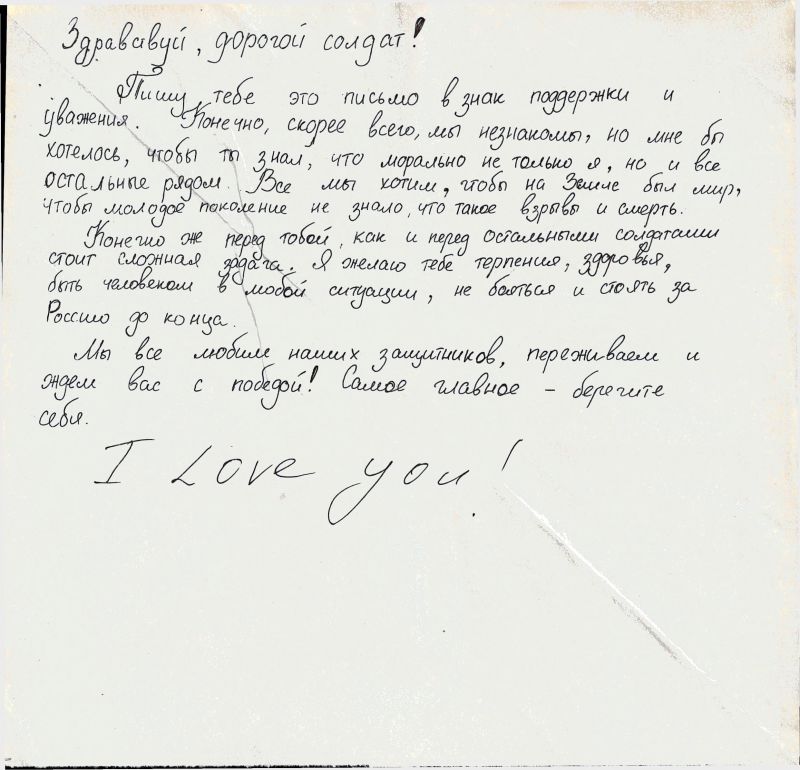 Здравствуй, дорогой солдат!
Пишу тебе это письмо в знак поддержки и
уважения. Конечно, скорее всего, мы незнакомы, но мне бы
хотелось, чтобы ты знал, что морально не только я, но и все
остальные рядом. Все мы хотим, чтобы на Земле был мир,
чтобы молодое поколение не знало, что такое взрывы и смерть.
Конечно же перед тобой, как и перед остальными солдатами
стоит сложная задача. Я желаю тебе терпения, здоровья,
быть человеком в любой ситуации, не бояться и стоять за
Россию до конца.
Мы все любим наших защитников, переживаем и
ждем вас с победой! Самое главное - берегите
себя.
I Love you!